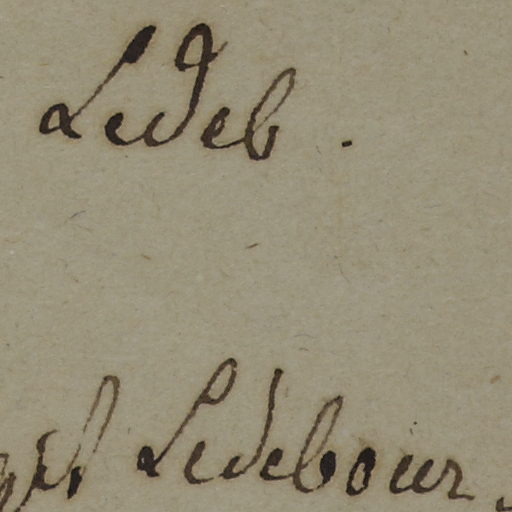 Ledeb.
Ledebour